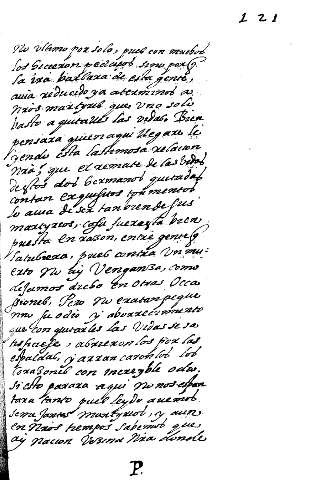 121
No ultimo por solo, pues con muchos
los hicieron pedaços sino porq̃
la ira barbara de esta gente,
avia reducido ya a terminos a
nr̃os martyres que uno solo
basto a quitarles las vidas. Bien
pensara quien aqui llegare le
yendo esta lastimosa relacion
nr̃a, que el remate de las vidas
destos dos hermanos quitadas
con tan exquisitos tormentos
lo avia de ser tambien de sus
martyrios, cosa fuera esta bien
puesta en razon, entre gente q̃
la tubiera, pues contra un mu-
erto no ay venganza, como
dejamos dicho en otras occa
siones. Pero no era tan peque
no su odio y aborrecimiento
que con quitarles las vidas se sa
tisfaciesse, abrieron los por las
espaldas, y arrancaron los los
corazones con increyble odio,
si esto parara aqui no nos espan
tara tanto pues leydo avemos
semejantes martyrios, y aun
en nr̃os tiempos sabemos que
ay nacion vezina nr̃a donde
P.